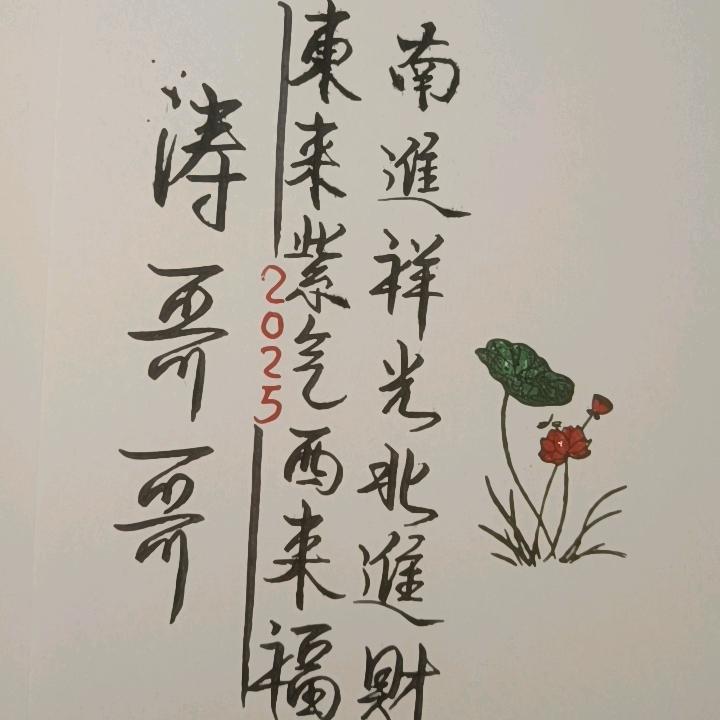 南進祥光北進财
東来紫气西来福
2025
涛哥哥